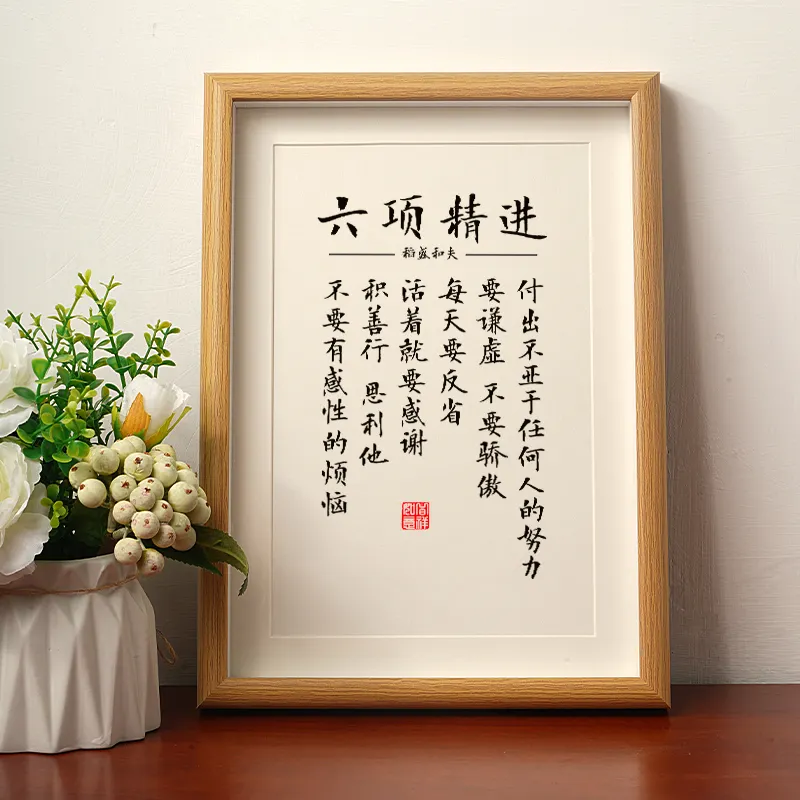 六项精进
稻盛和夫
付出不亚于任何人的努力
要谦虚 不要骄傲
每天要反省
活着就要感谢
积善行 思利他
不要有感性的烦恼
吉祥
如意